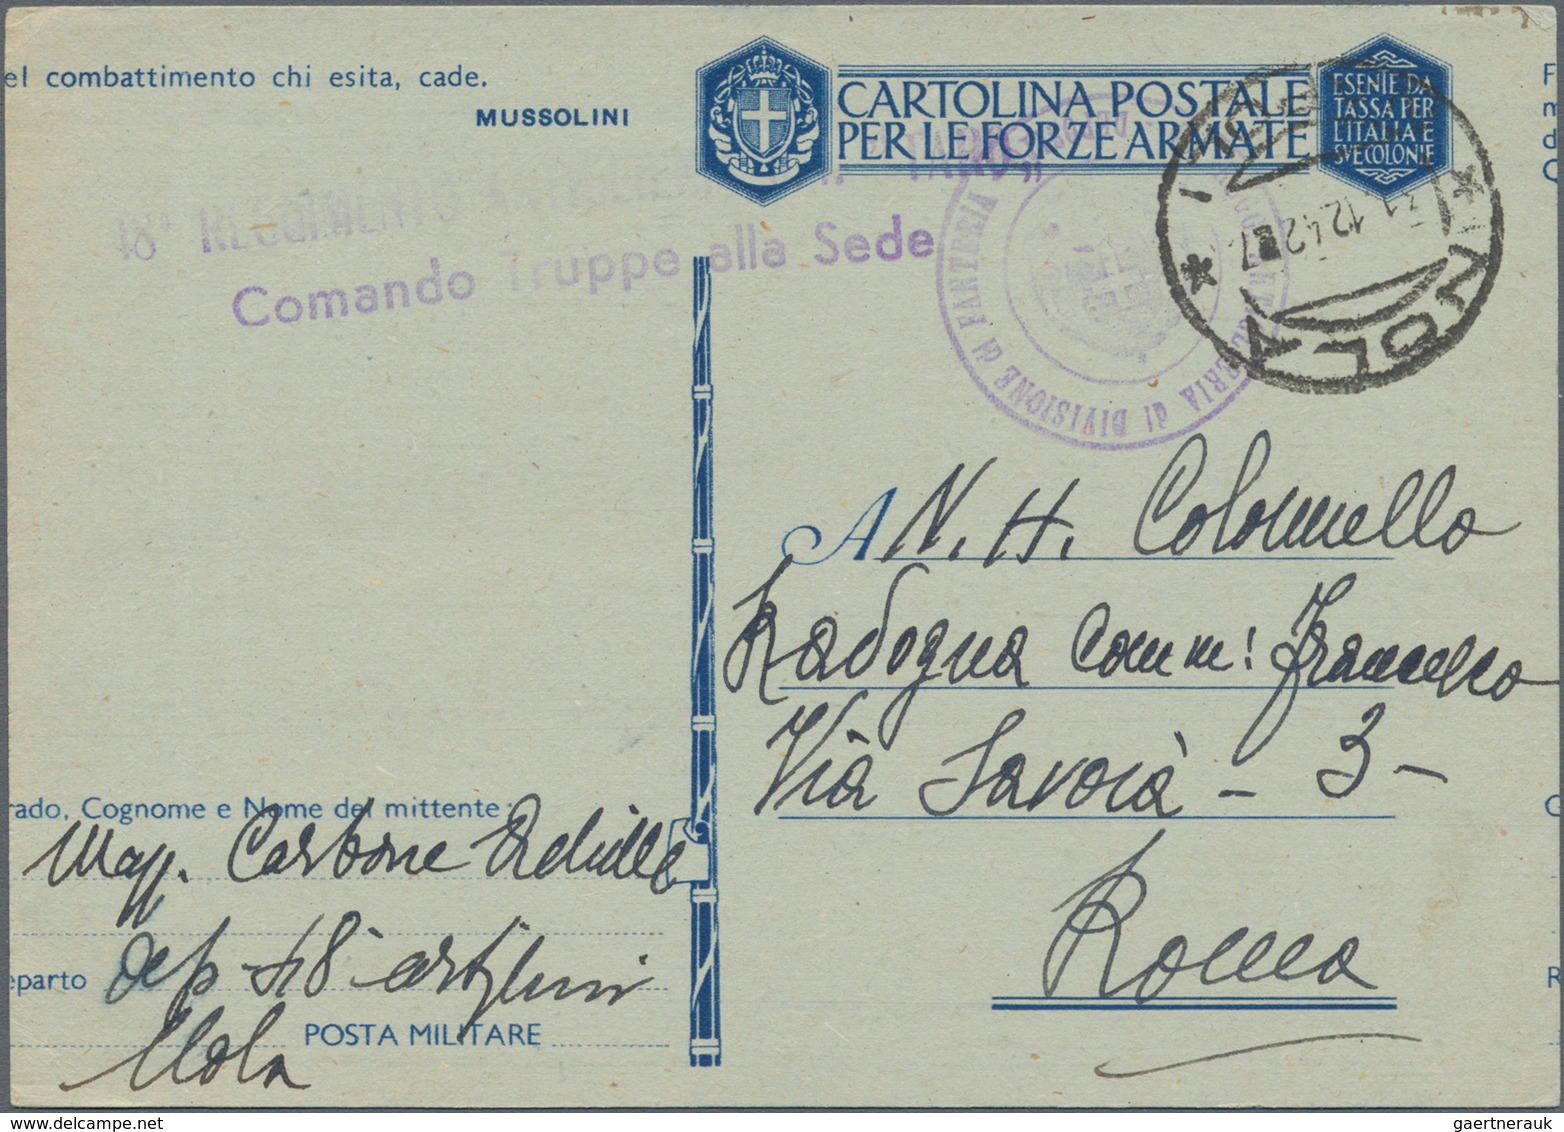 el combattimento chi esita, cade.
MUSSOLINI
CARTOLINA POSTALE
PER LE FORZE ARMATE
ESENTE DA
TASSA PER
L'ITALIA E
SVE COLONIE
F
m
d
Q
48° REGGIMENTO "TARO"
Comando Truppe alla Sede
ARTIGLIERIA di DIVISIONE di FANTERIA
NOLA
31.12.42
A N. H. Colonnello
Radogna Comm: Francesco
Via Savoià - 3 -
Roma
rado, Cognome e Nome del mittente:
Magg. Carbone Achille
eparto dep 48° artiglieria
Nola POSTA MILITARE
G
R
gaertnerauk